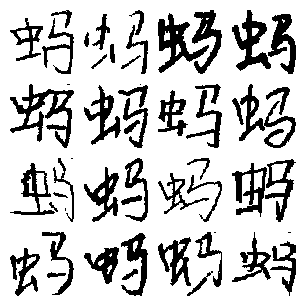 蚂蚂蚂蚂
蚂蚂蚂蚂
蚂蚂蚂蚂
蚂蚂蚂蚂